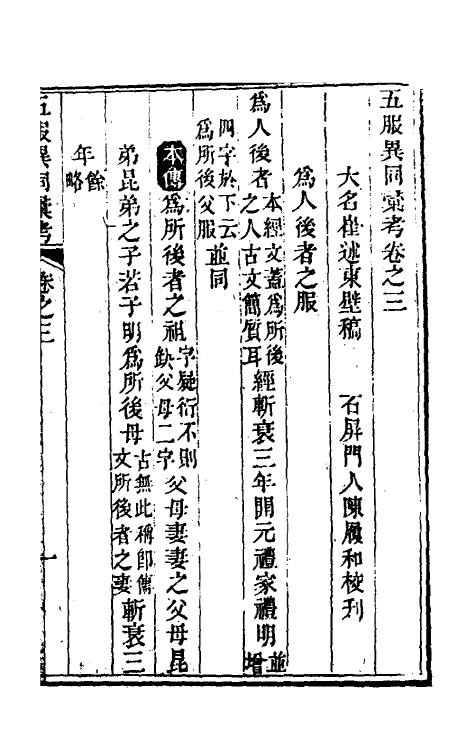 五服異同彙考卷之三
大名崔述東壁稿　石屏門人陳履和校刋
爲人後者之服
爲人後者本經文蓋爲所後之人古文簡質耳經斬衰三年開元禮家禮明並增
四字於下云爲所後父服並同
本傳爲所後者之祖字疑衍不則缺父母二字父母妻妻之父母昆
弟昆弟之子若子明爲所後母古無此稱卽傳文所後者之妻斬衰三
年餘略
五服異同彙考　卷之三　一